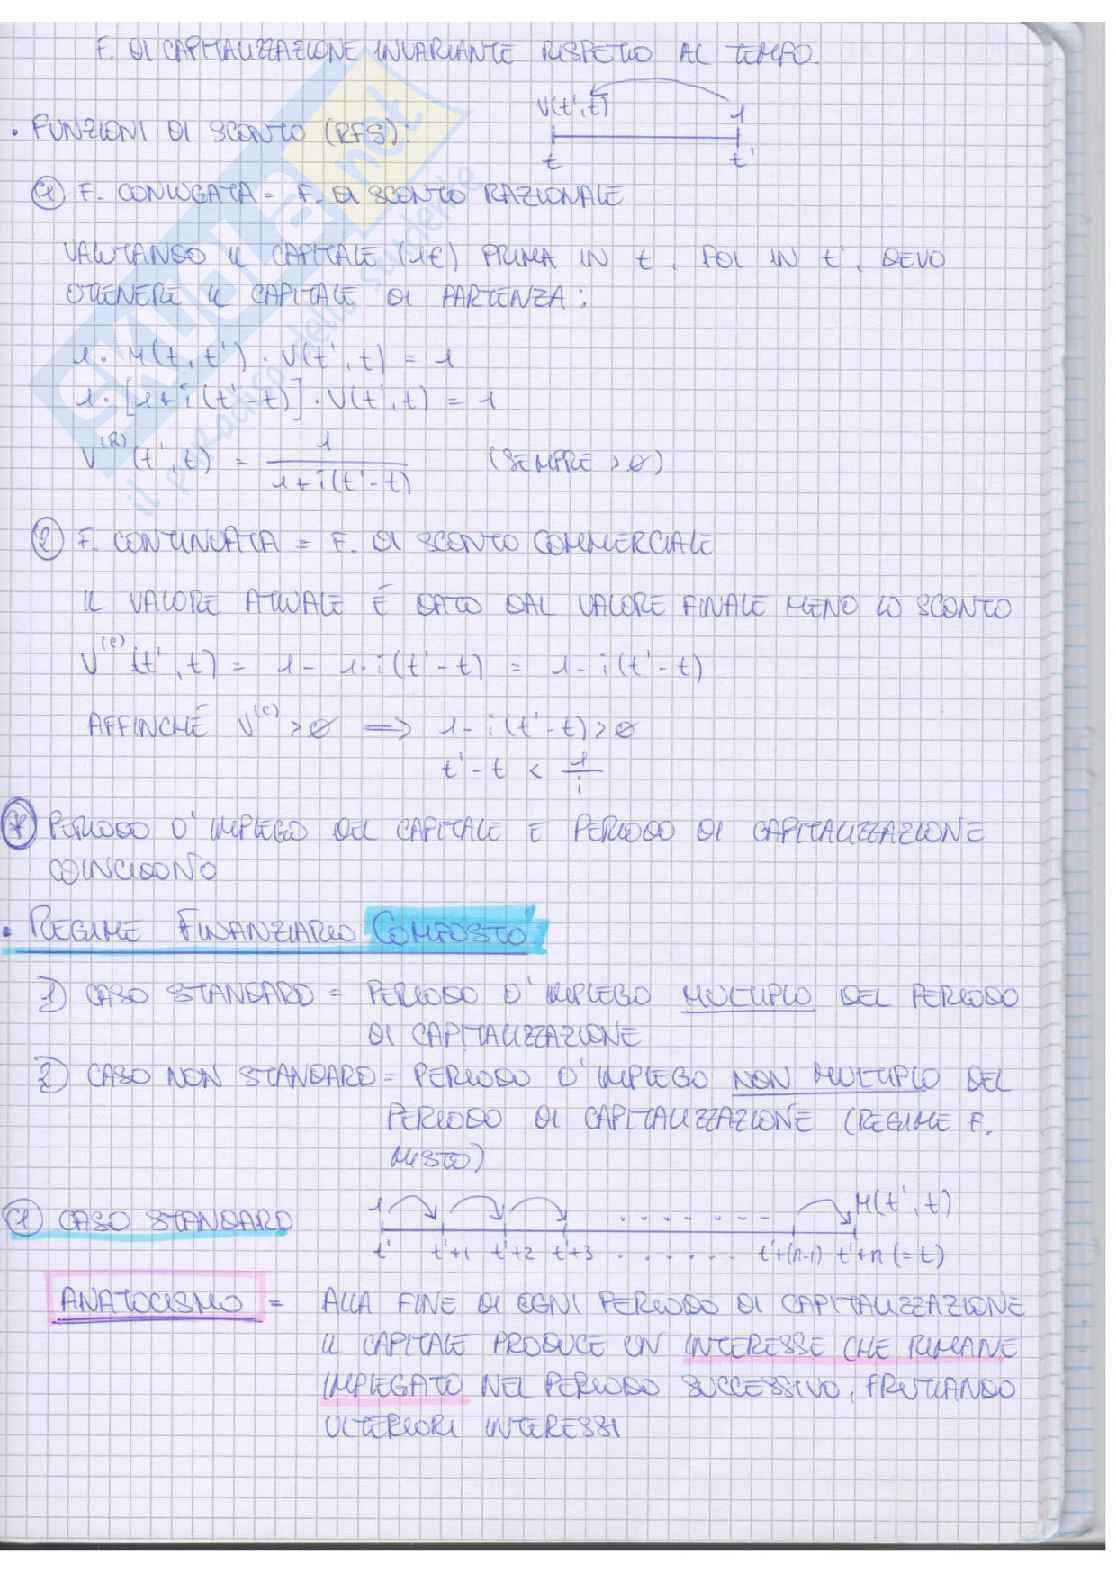 F. DI CAPITALIZZAZIONE INVARIANTE RISPETTO AL TEMPO.
V(t',t) 1
t t'
• FUNZIONI DI SCONTO (RFS):
① F. CONIUGATA = F. DI SCONTO RAZIONALE
VALUTANDO IL CAPITALE (1€) PRIMA IN t, POI IN t', DEVO
OTTENERE IL CAPITALE DI PARTENZA:
1 · M(t,t') · V(t',t) = 1
1 · [1+i(t'-t)] · V(t',t) = 1
V^(R)(t',t) = 1/(1+i(t'-t)) (SEMPRE >0)
② F. CONTINUATA = F. DI SCONTO COMMERCIALE
IL VALORE ATTUALE È DATO DAL VALORE FINALE MENO LO SCONTO
V^(C)(t',t) = 1 - 1·i(t'-t) = 1-i(t'-t)
AFFINCHÉ V^(C) > 0 ⟹ 1-i(t'-t) > 0
t'-t < 1/i
PERIODO D'IMPIEGO DEL CAPITALE E PERIODO DI CAPITALIZZAZIONE
COINCIDONO
• REGIME FINANZIARIO COMPOSTO
1) CASO STANDARD = PERIODO D'IMPIEGO MULTIPLO DEL PERIODO
DI CAPITALIZZAZIONE
2) CASO NON STANDARD = PERIODO D'IMPIEGO NON MULTIPLO DEL
PERIODO DI CAPITALIZZAZIONE (REGIME F.
MISTO)
① CASO STANDARD
1 . . . . . . . M(t',t)
t' t'+1 t'+2 t'+3 . . . . . . t'+(n-1) t'+n (=t)
ANATOCISMO = ALLA FINE DI OGNI PERIODO DI CAPITALIZZAZIONE
IL CAPITALE PRODUCE UN INTERESSE CHE RIMANE
IMPIEGATO NEL PERIODO SUCCESSIVO, FRUTTANDO
ULTERIORI INTERESSI
SKUOLA.net
il paradiso dello studente